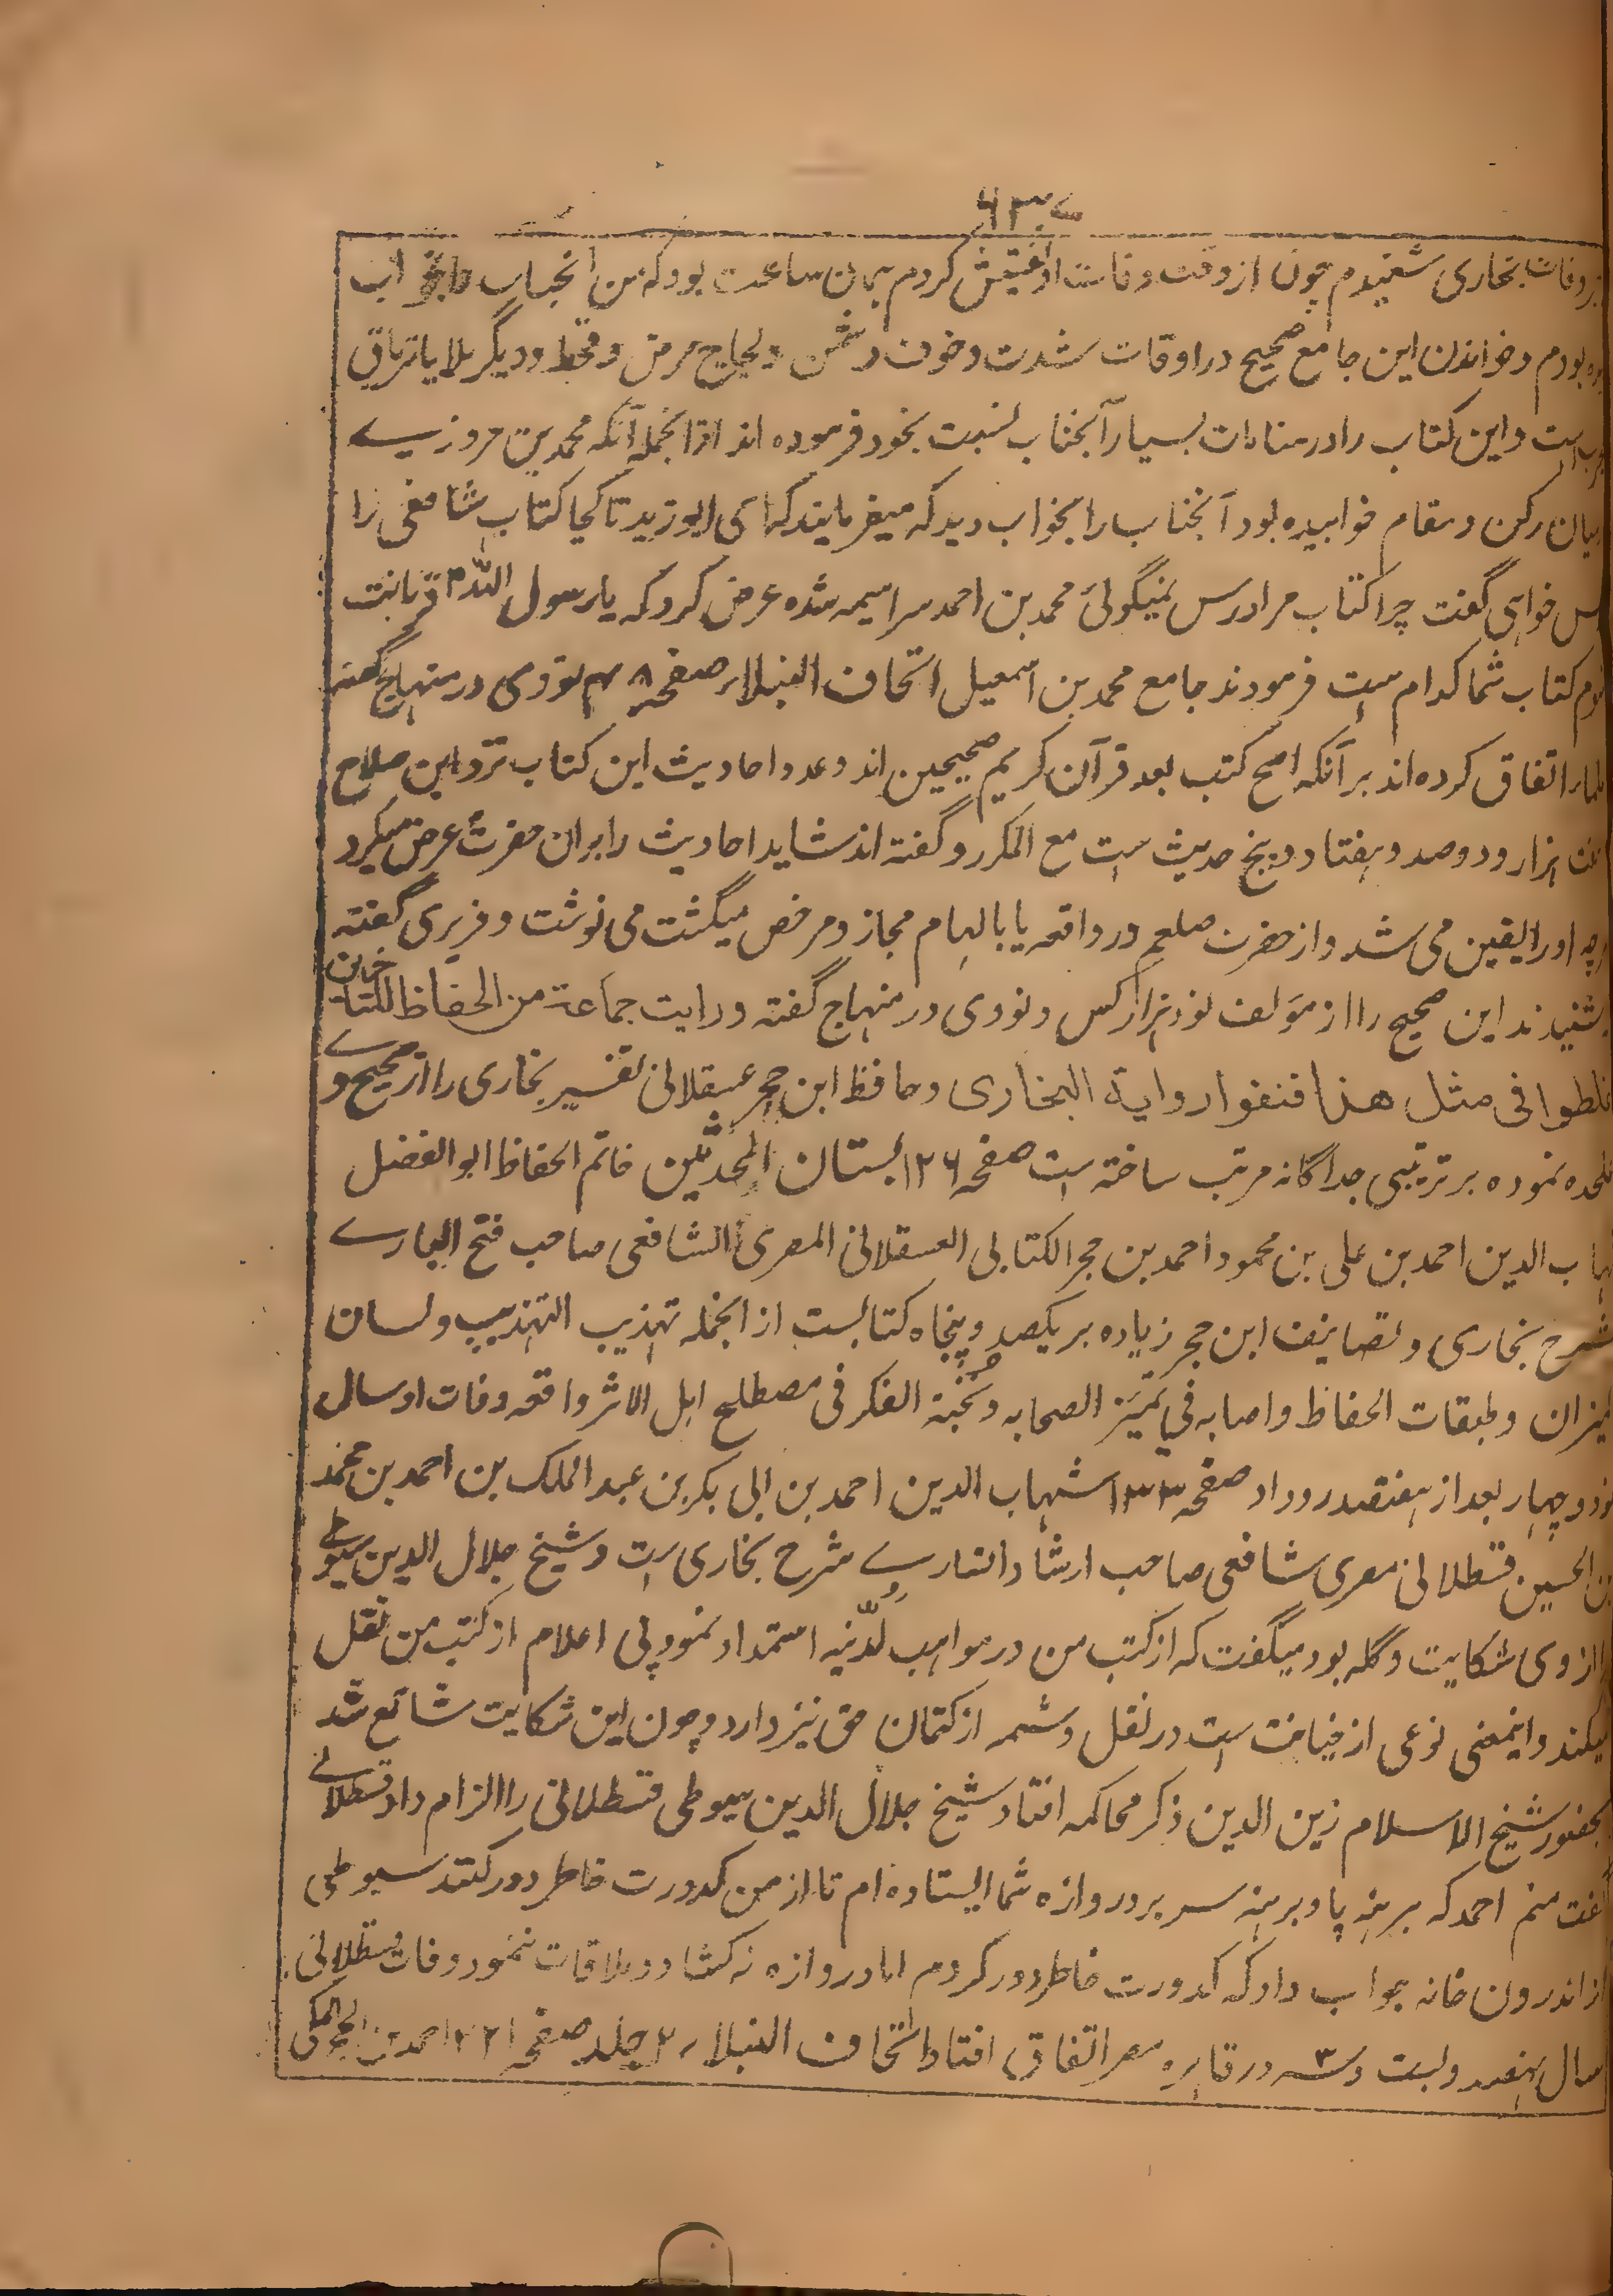 ۶۳۷
وفات بخاری شنیدم چون از وقت وفات او تفتیش کردم همان ساعت بود که من آنجناب را بخواب
بودم و خواندن این جامع صحیح در اوقات شدت و خوف دشمن و مرض و قحط و دیگر بلایا تریاق
است و این کتاب را در منامات بسیار آنجناب نسبت بخود فرموده اند ازانجمله آنکه محمد بن مروزی
میان رکن و مقام خوابیده بود آنجناب را بخواب دید که میفرمایند که ای ابو زید تا کجا کتاب شافعی را
خواهی گفت چرا کتاب مرا درس نمیگوئی محمد بن احمد سراسیمه شده عرض کرد که یا رسول الله ﷺ قربانت
شوم کتاب شما کدام ست فرمودند جامع محمد بن اسمعیل اتحاف النبلاء صفحه ۴۸ نووی در منهاج گفته
علماء اتفاق کرده اند بر آنکه اصح کتب بعد قرآن کریم صحیحین اند و عدد احادیث این کتاب نزد ابن صلاح
هفت هزار و دو صد و هفتاد و پنج حدیث ست مع المکرر و گفته اند شاید احادیث را بران حضرت عرض میکرد
هرچه او را یقین می شد و از حضرت صلعم در واقعه یا بالهام مجاز و مرخص میگشت می نوشت و فربری گفته
شنیدند این صحیح را از مؤلف نود هزار کس و نووی در منهاج گفته ورایت جماعة من الحفاظ المتاخرین
غلطوا فی مثل هذا فنفوا روایة البخاری و حافظ ابن حجر عسقلانی تفسیر بخاری را از صحیح وے
علحده نموده بر ترتیبی جداگانه مرتب ساخته ست صفحه ۱۲۶ بستان المحدثین خاتم الحفاظ ابو الفضل
شهاب الدین احمد بن علی بن محمود احمد بن حجر الکتابی العسقلانی المصری الشافعی صاحب فتح الباری
شرح بخاری و تصانیف ابن حجر زیاده بر یکصد و پنجاه کتابست ازانجمله تهذیب التهذیب و لسان
المیزان و طبقات الحفاظ و اصابه فی تمییز الصحابه و نخبة الفکر فی مصطلح اهل الاثر واقعه وفات او سال
نود و چهار بعد از هفتصد رو داد صفحه ۱۳۳ شهاب الدین احمد بن ابی بکر بن عبد الملک بن احمد بن محمد
بن الحسین قسطلانی مصری شافعی صاحب ارشاد الساری شرح بخاری ست و شیخ جلال الدین سیوطی
را از وی شکایت و گله بود میگفت که از کتب من در مواهب لدنیه استمداد نمود بی اعلام از کتب من نقل
میکند و اینمعنی نوعی از خیانت ست در نقل و شمه از کتمان حق نیز دارد و چون این شکایت شائع شد
بحضور شیخ الاسلام زین الدین ذکر محاکمه افتاد شیخ جلال الدین سیوطی قسطلانی را الزام داد قسطلانی
گفت منم احمد که برهنه پا و برهنه سر بر دروازه شما ایستاده ام تا از من کدورت خاطر دور کنند سیوطی
از اندرون خانه جواب داد که کدورت خاطر دور کردم اما دروازه نه کشاد و ملاقات ننمود وفات قسطلانی
سال نهصد و بست و سه در قاهره مصر اتفاق افتاد اتحاف النبلاء جلد ۲ صفحه ۲۲۱ احمد بن